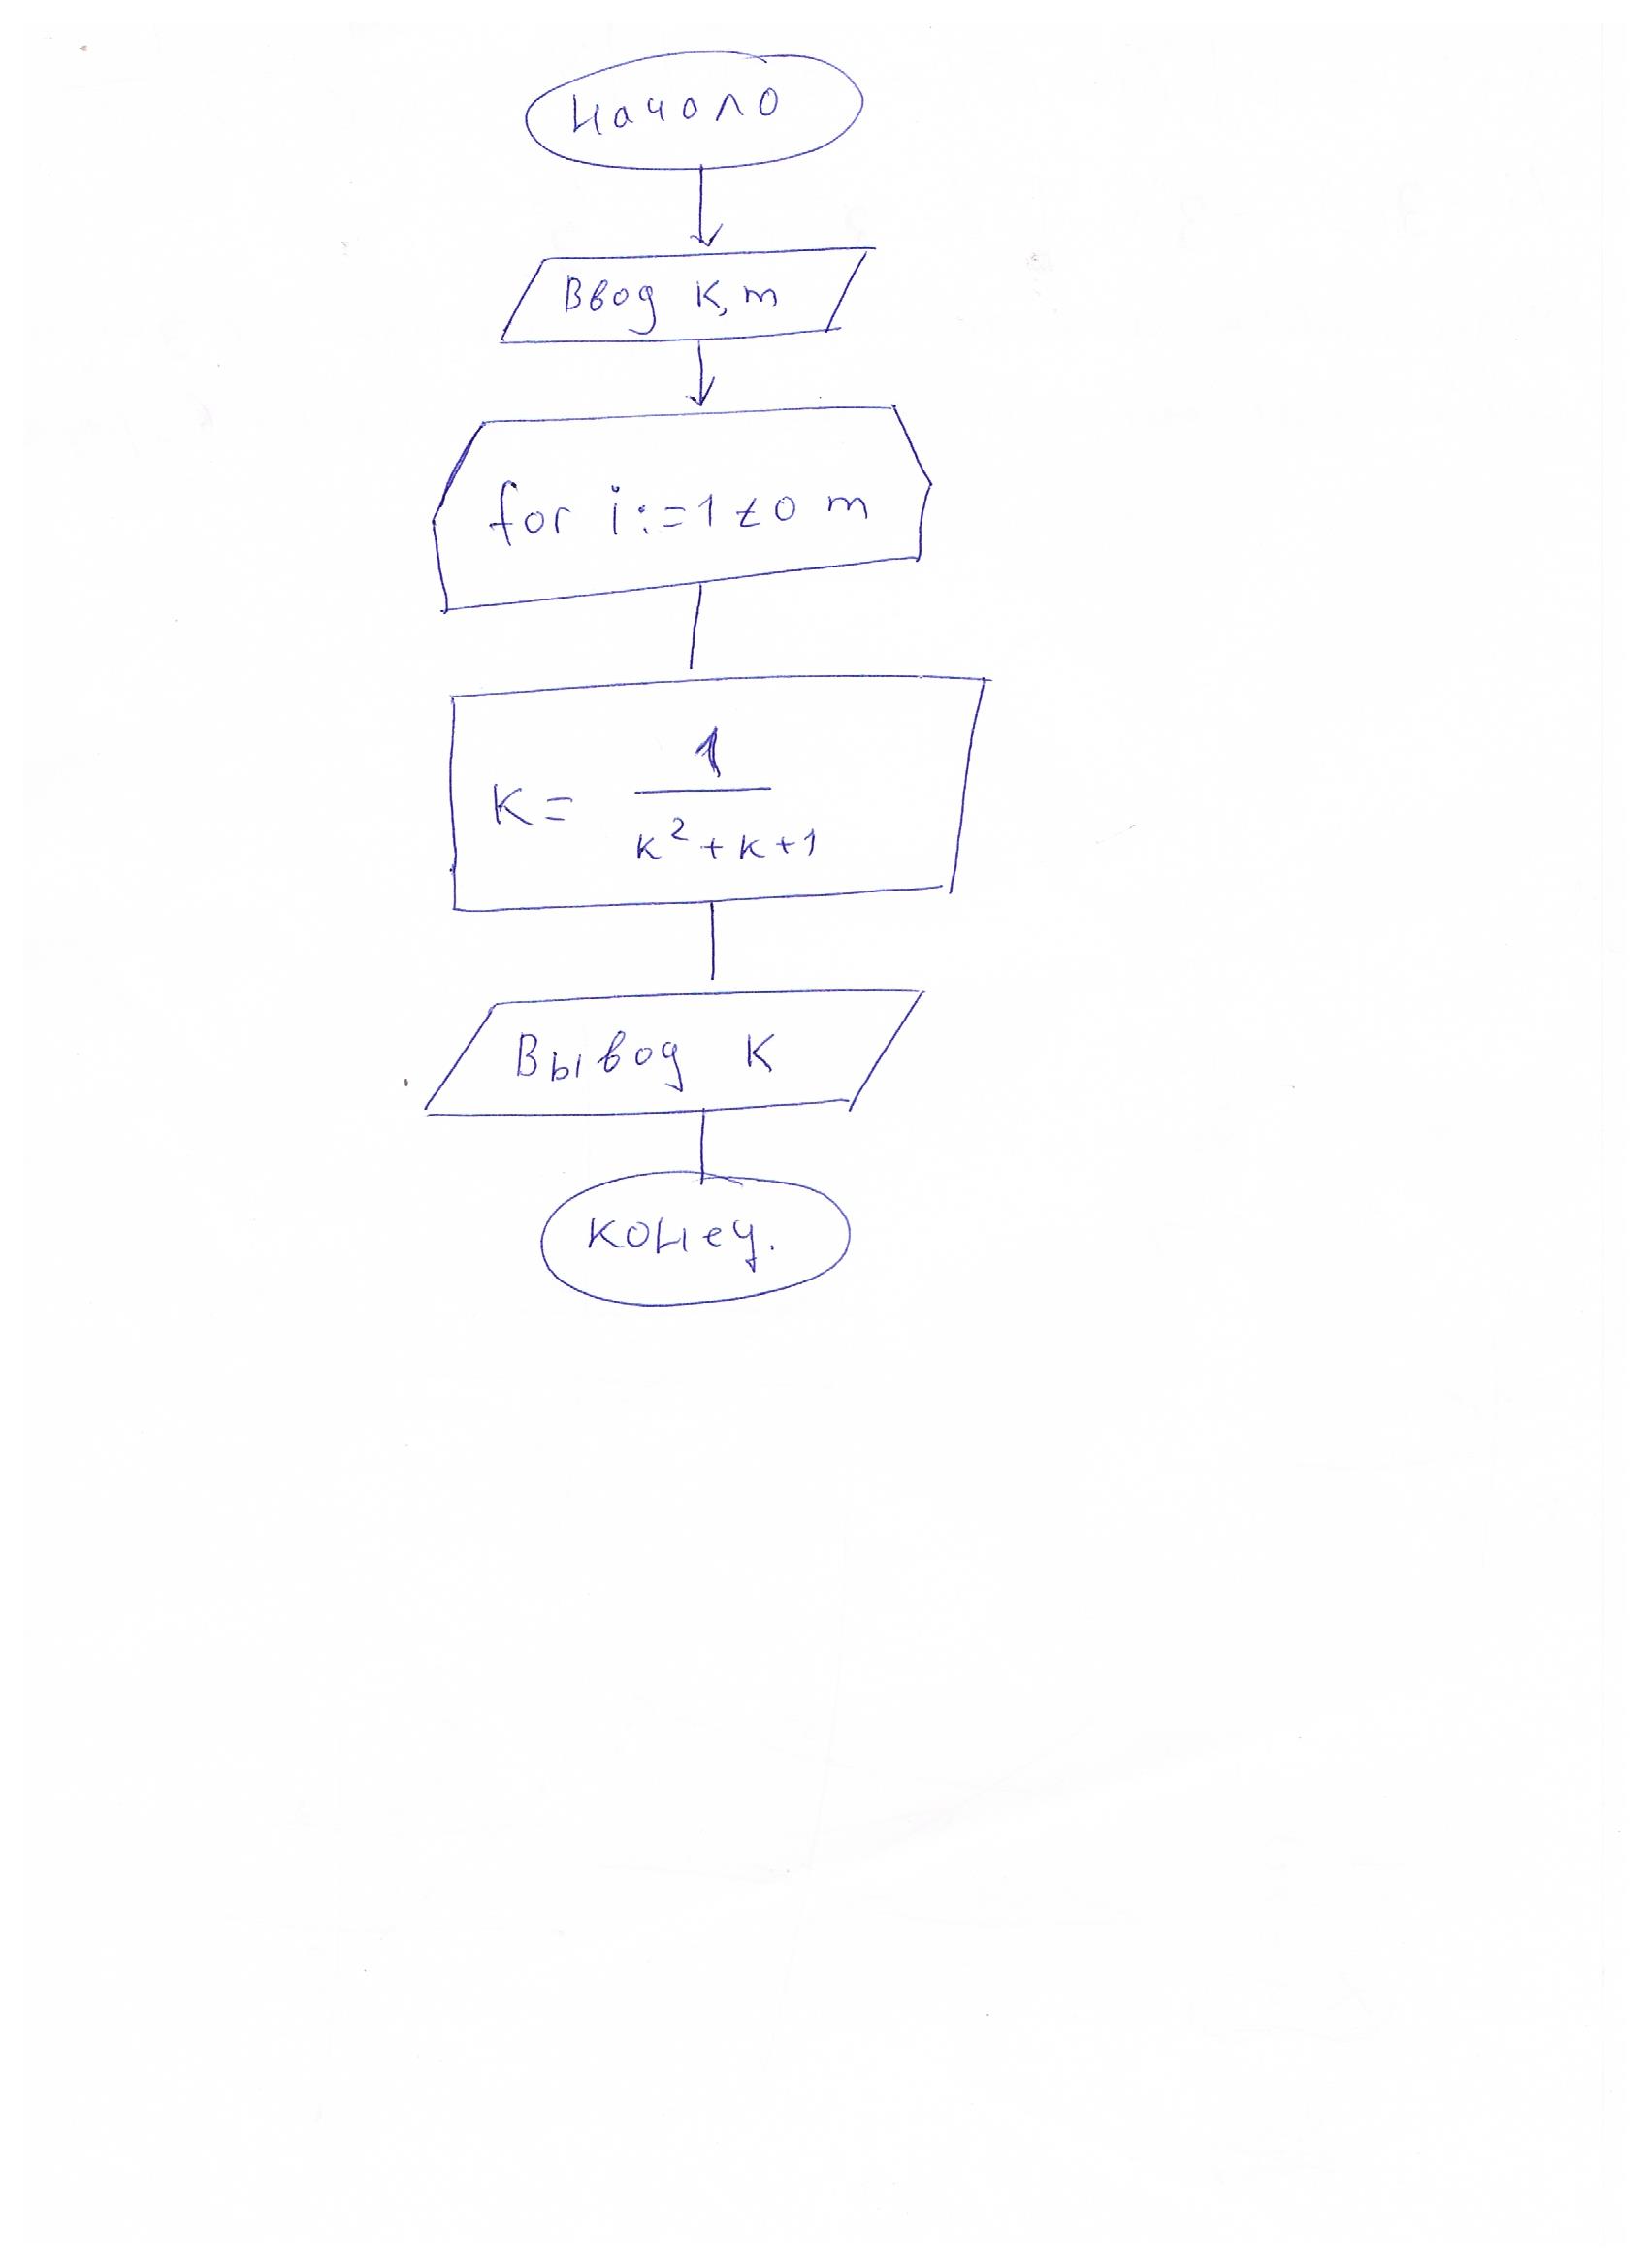 Начоло
Ввод K, m
for i:=1 to m
K = 1
k²+k+1
Вывод K
конец.